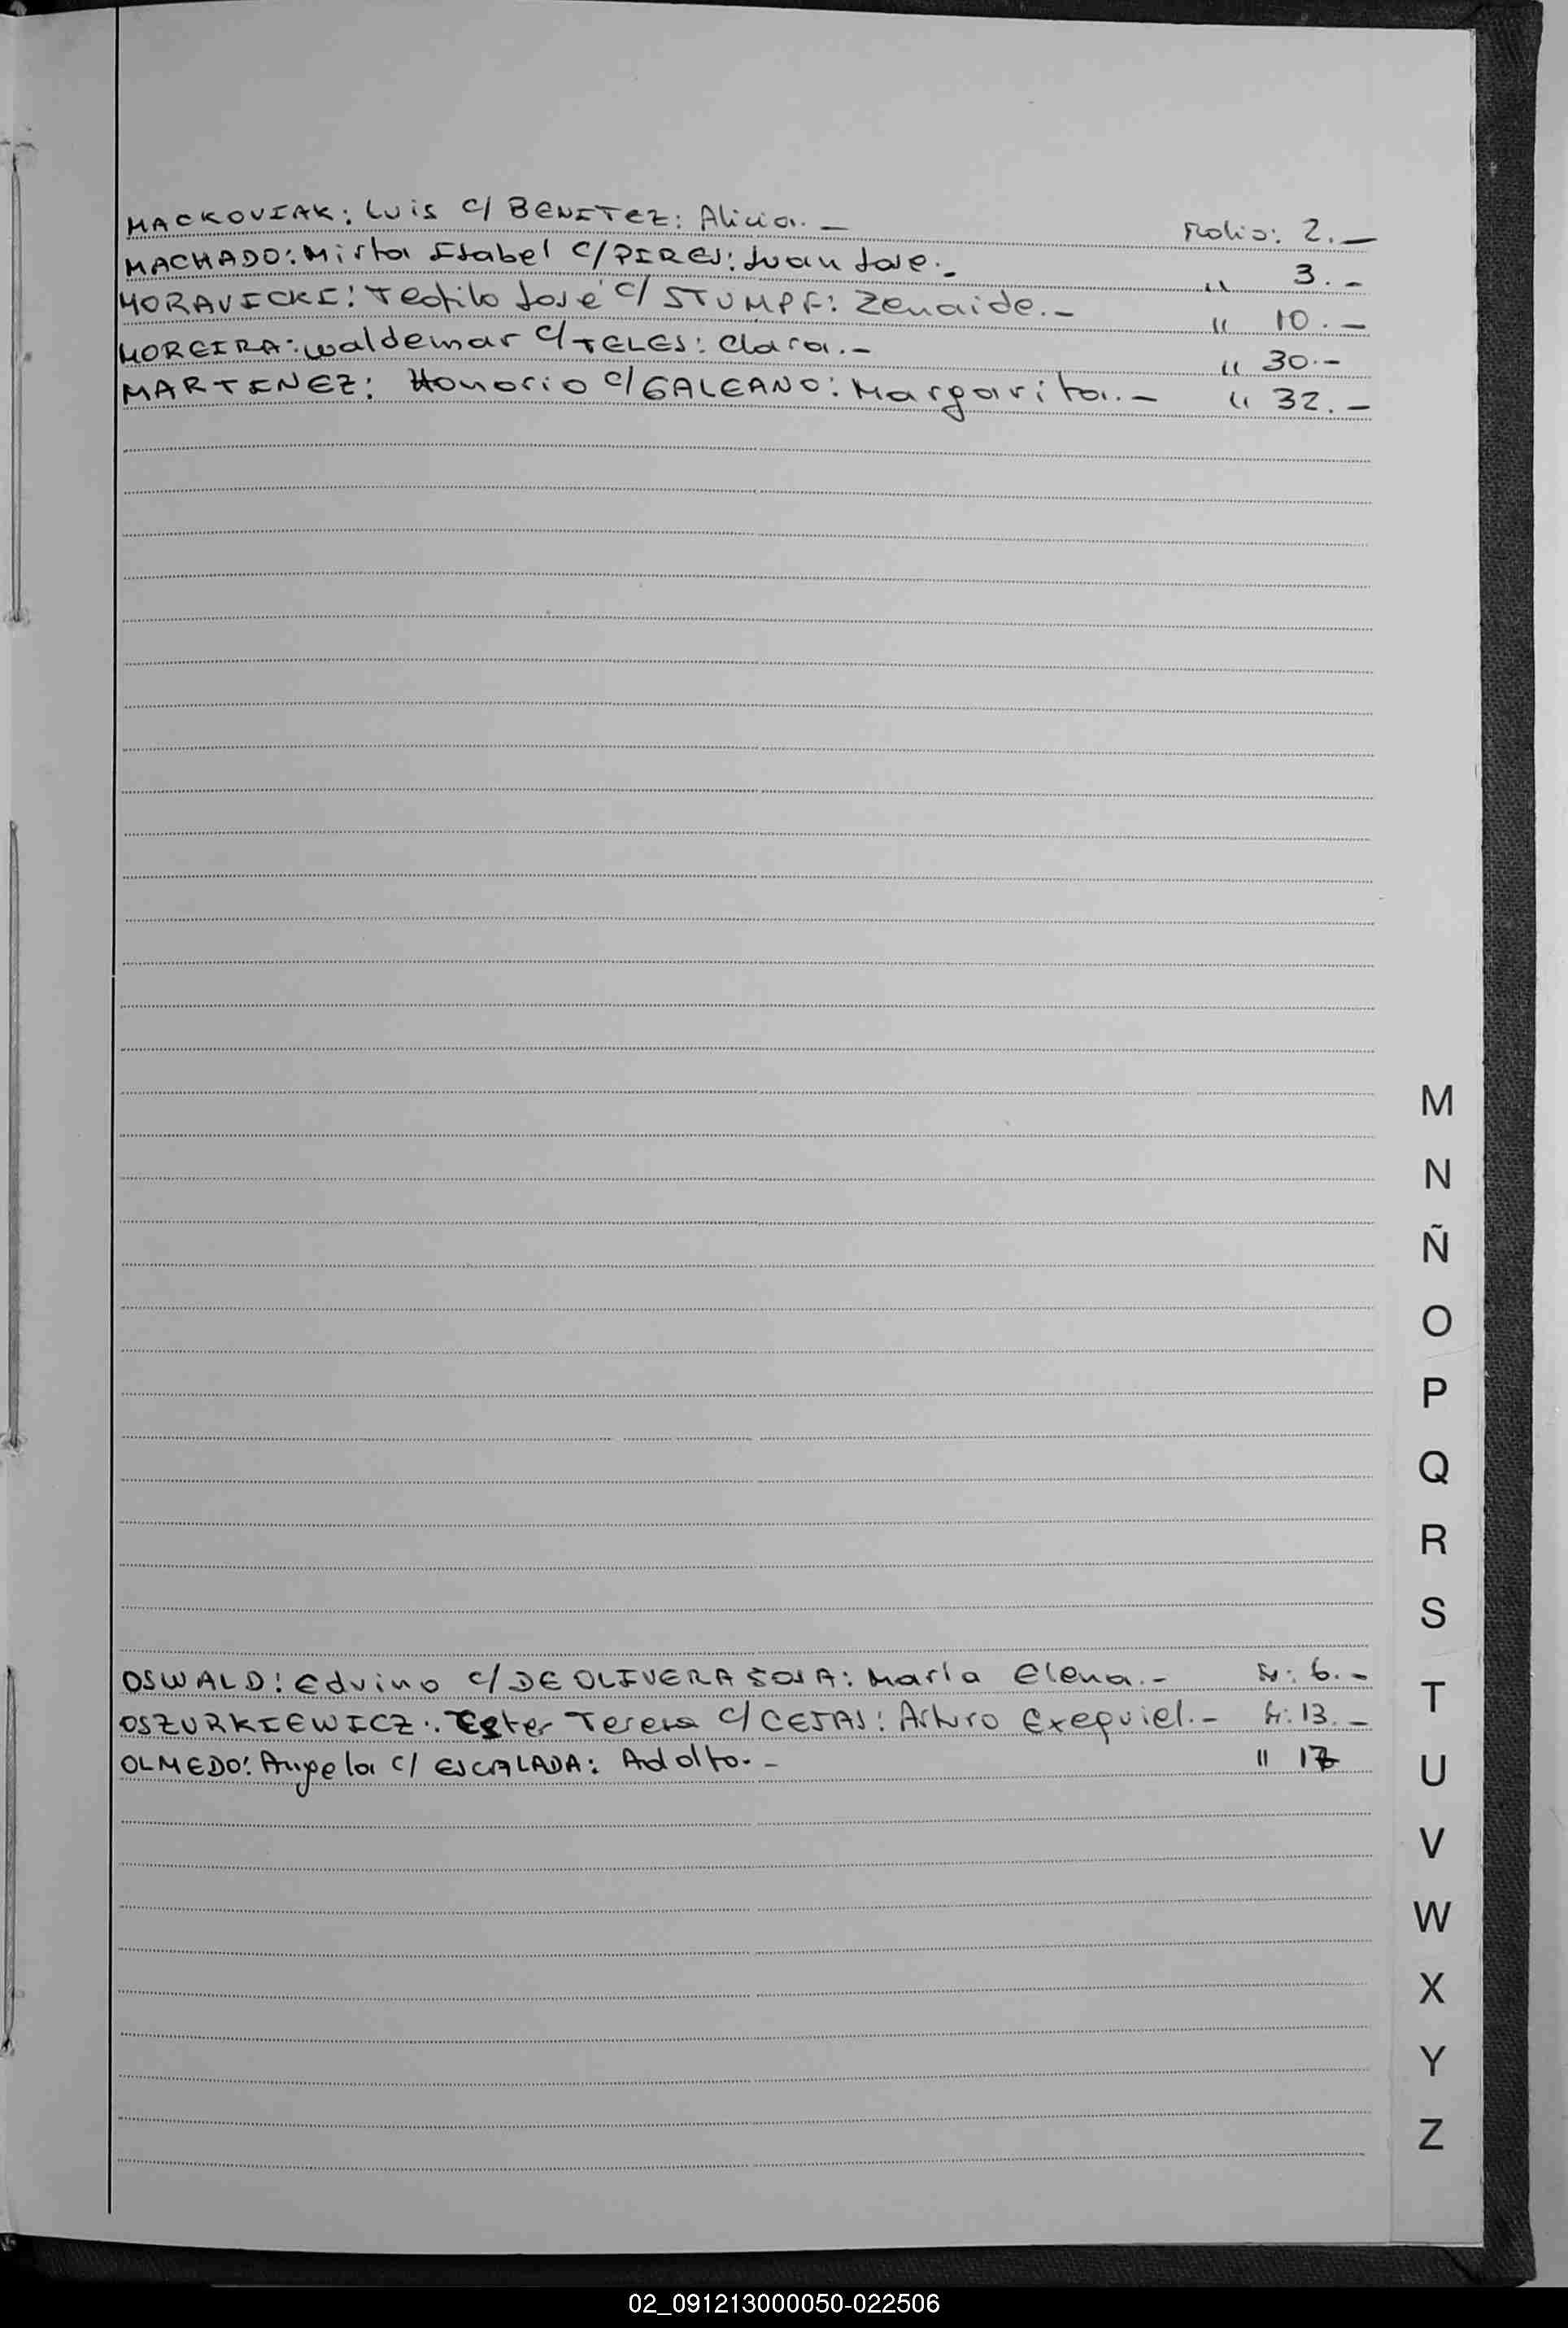 MACKOVIAK: Luis c/ BENITEZ: Alicia.- Folio: 2.-
MACHADO: Mirta Isabel c/ PIRES: Juan Jose.- " 3.-
MORAVICKI: Teofilo José c/ STUMPF: Zenaide.- " 10.-
MOREIRA: Waldemar c/ TELES: Clara.- " 30.-
MARTINEZ: Honorio c/ GALEANO: Margarita.- " 32.-
M
N
Ñ
O
P
Q
R
S
OSWALD: Edvino c/ DE OLIVERA SOSA: María Elena.- F: 6.-
T
OSZURKIEWICZ: Ester Teresa c/ CEJAS: Arturo Exequiel.- F: 13.-
OLMEDO: Angela c/ ESCALADA: Adolfo.- "
U
V
W
X
Y
Z
02_091213000050-022506